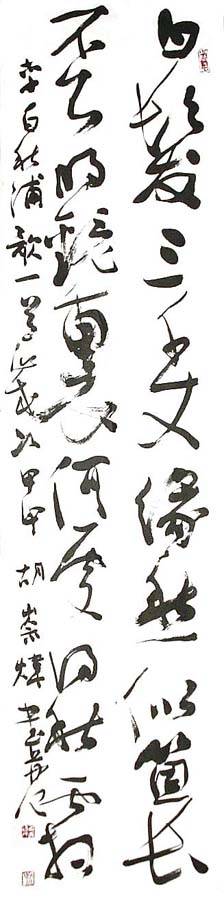 白髮三千丈緣愁似箇長
不知明鏡裏何處得秋霜
李白秋浦歌一首歲次甲申胡崇煒書